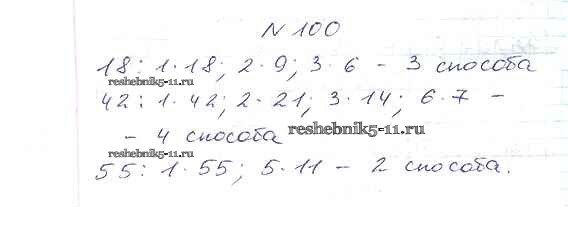 N 100
18: 1·18; 2·9; 3·6 - 3 способа
reshebnik5-11.ru
42: 1·42; 2·21; 3·14; 6·7 -
- 4 способа reshebnik5-11.ru
reshebnik5-11.ru
55: 1·55; 5·11 - 2 способа.